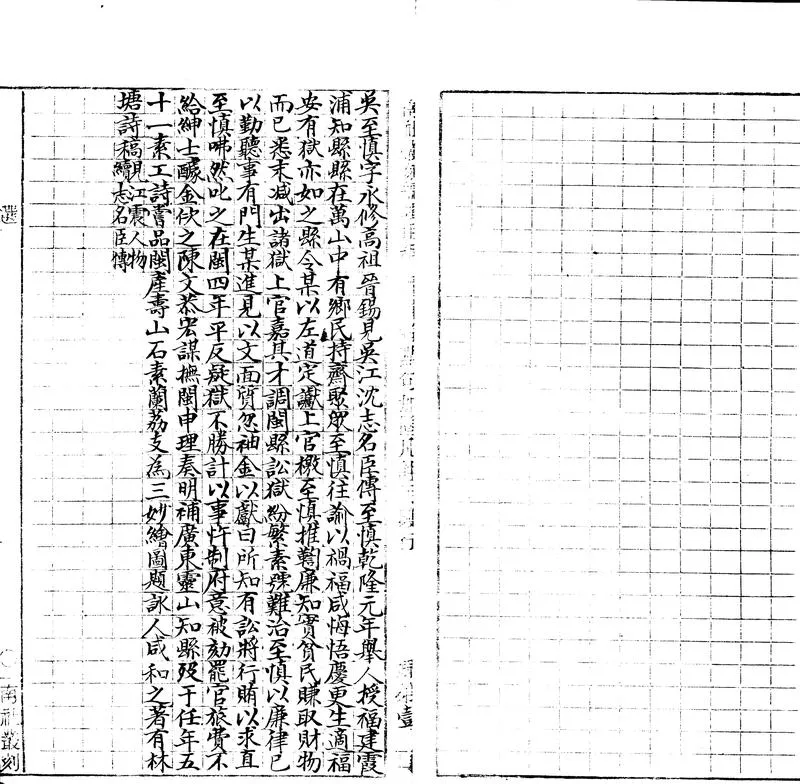 吳至慎字永修高祖晉錫見吳江沈志名臣傳至慎乾隆元年舉人授福建霞
浦知縣縣在萬山中有鄉民持齋聚眾至慎往諭以禍福咸悔悟慶更生適福
安有獄亦如之縣令某以左道定讞上官檄至慎推鞫廉知實貧民賺取財物
而已悉末減出諸獄上官嘉其才調閩縣訟獄紛繁素號難治至慎以廉律己
以勤聽事有門生某進見以文面質忽袖金以獻曰所知有訟將行賄以求直
至慎咈然叱之在閩四年平反疑獄不勝計以事忤制府意被劾罷官旅費不
給紳士醵金佽之陳文恭宏謀撫閩申理奏明補廣東靈山知縣歿于任年五
十一素工詩嘗品閩產壽山石素蘭荔支為三妙繪圖題詠人咸和之著有林
塘詩稿見江震人物
續志名臣傳
選
南社叢刻